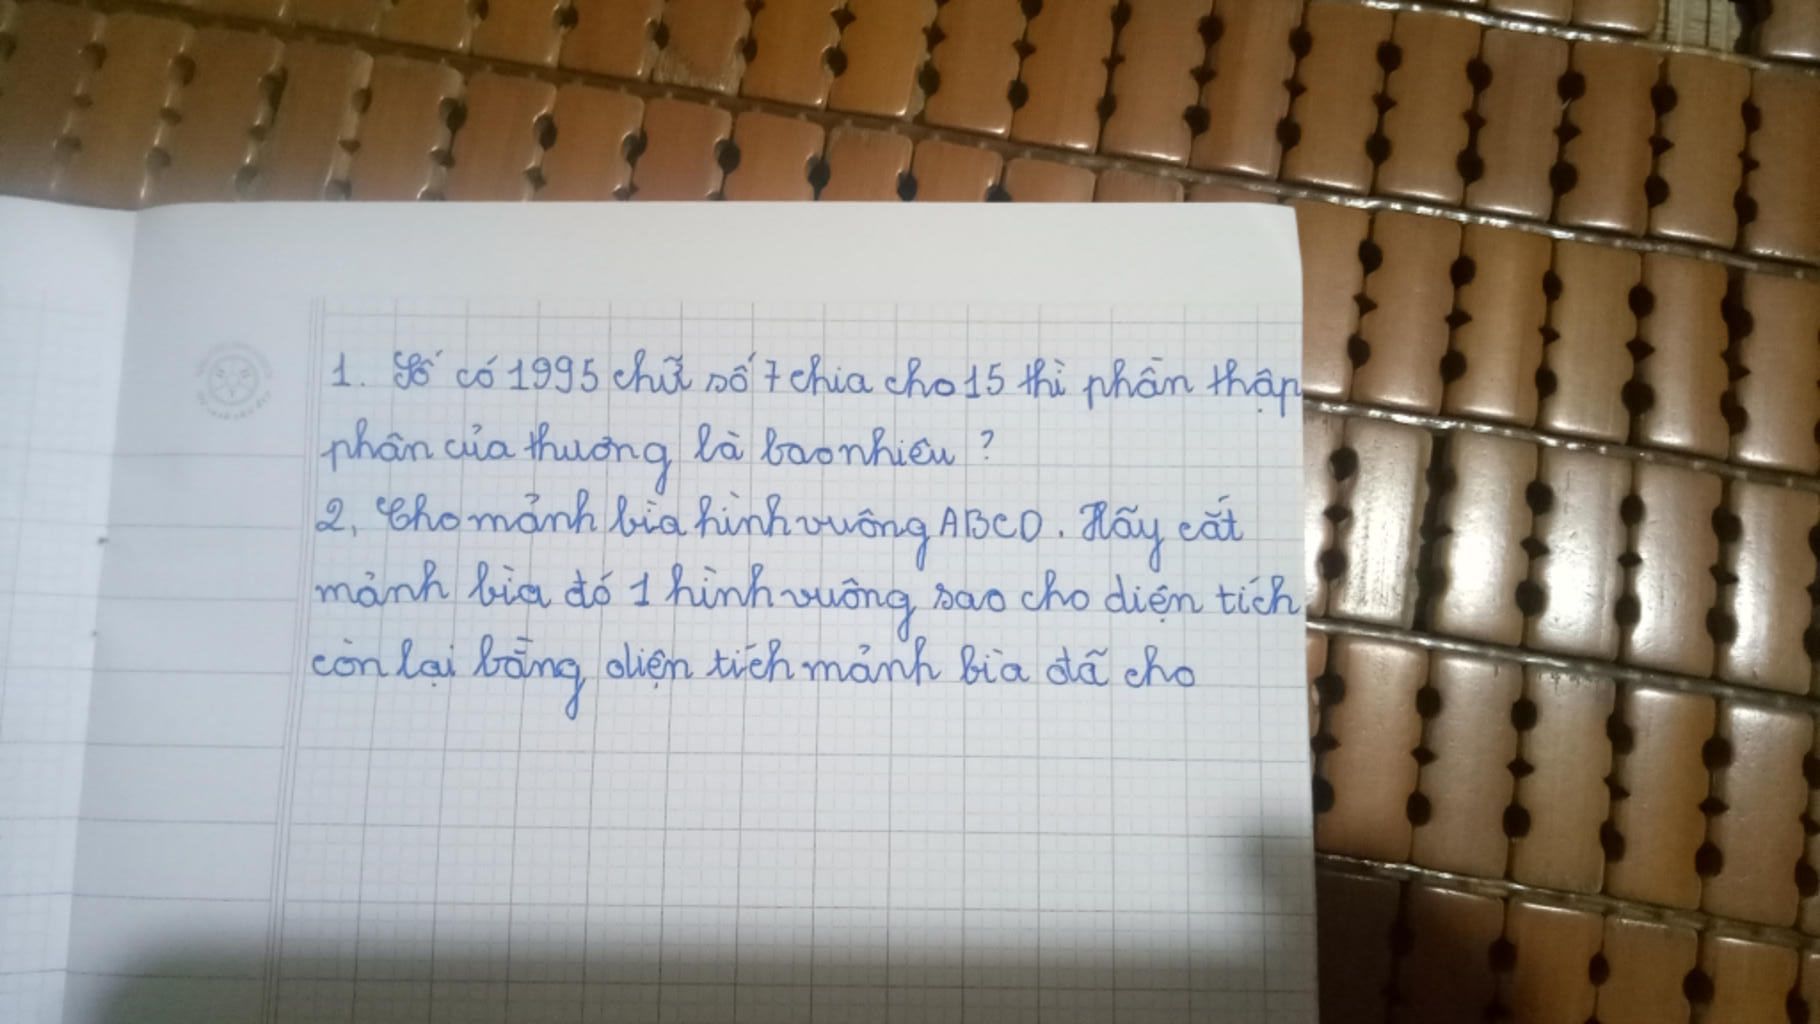 1. Số có 1995 chữ số 7 chia cho 15 thì phần thập
phân của thương là bao nhiêu?
2, Cho mảnh bìa hình vuông ABCD. Hãy cắt
mảnh bìa đó 1 hình vuông sao cho diện tích
còn lại bằng diện tích mảnh bìa đã cho